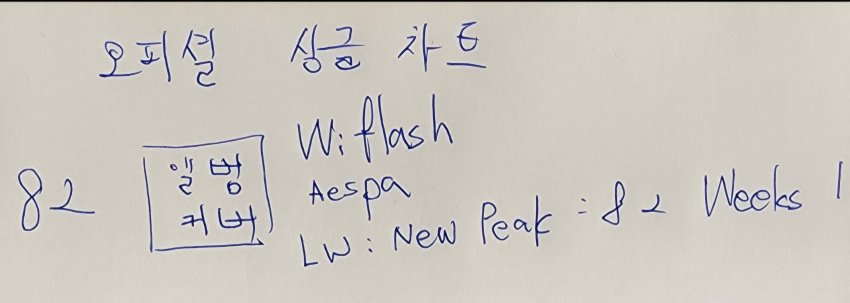 오피셜 싱글 차트
82
앨범
커버
Wiflash
Aespa
LW: New Peak: 82 Weeks 1